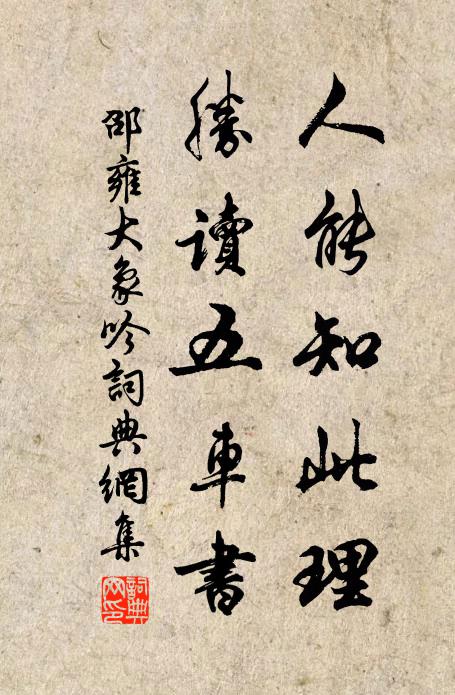 人能知此理
勝讀五車書
邵雍大象吟詞典網集
詞典網印